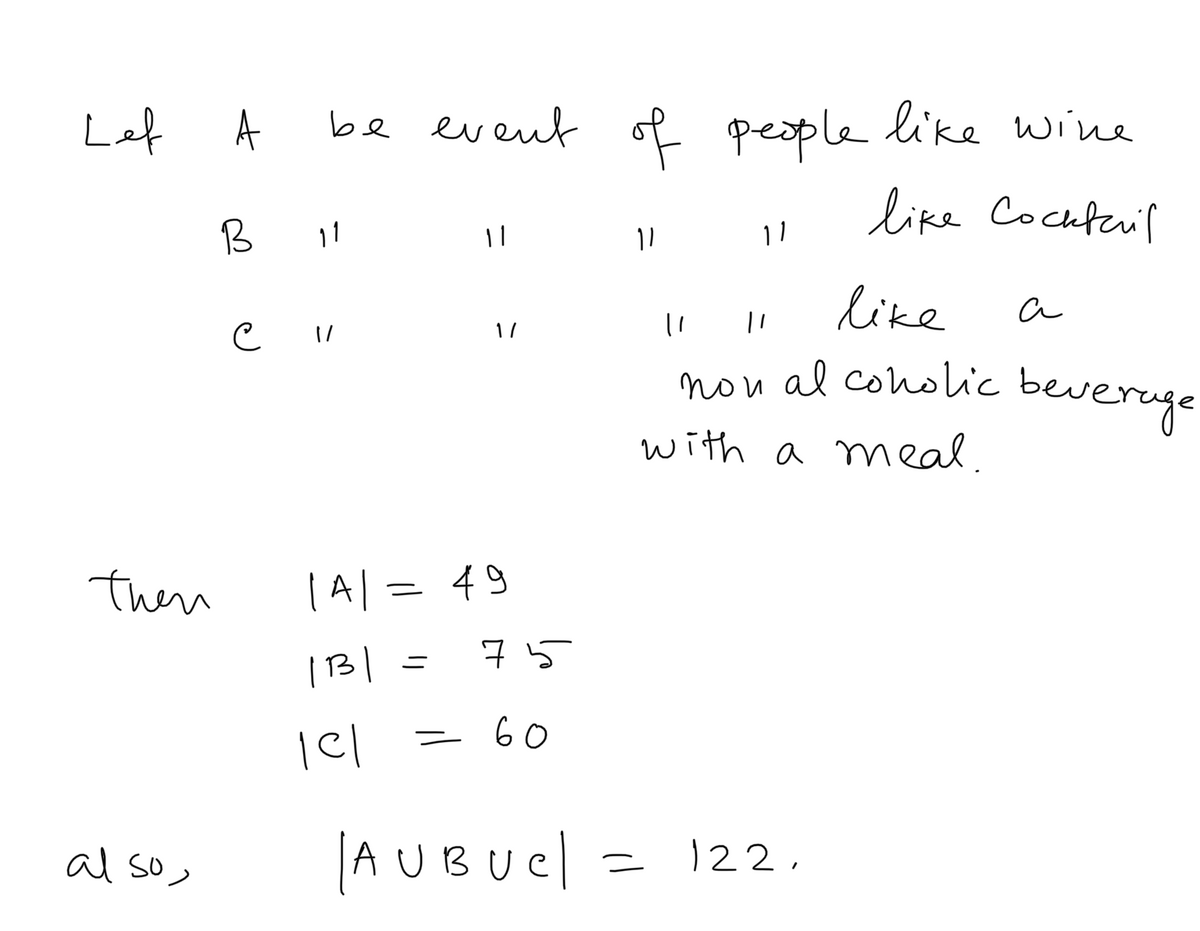 Let A be event of people like wine
B " " " " like Cocktail
C " " " " like a
non alcoholic beverage
with a meal.
then |A| = 49
|B| = 75
|C| = 60
also, |A ∪ B ∪ C| = 122.